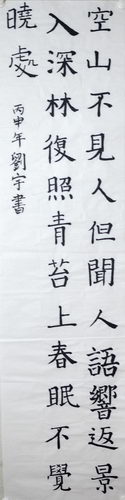 空山不見人但聞人語響返景
入深林復照青苔上春眠不覺
曉處
丙申年劉宇書